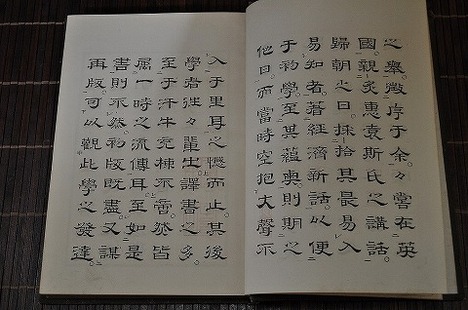 之舉。徵序于余。々嘗在英
國。親炙惠袁斯氏之講話。
歸朝之日。採拾其最易入
易知者。著經濟新話。以便
于初學。至其蘊奧。則期之
他日。而當時空抱大聲不
入于里耳之憾而止。其後
學者往々輩出。譯書之多。
至于汗牛充棟不啻。然皆
属一時之流傳耳。至如是
書則不然。初版既盡。又謀
再版。可以觀此學之發達。